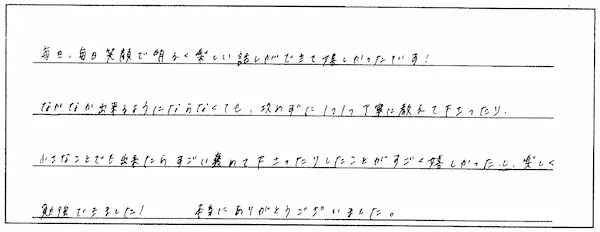 毎日、毎日笑顔で明るく楽しい話しができて嬉しかったです！
なかなか出来るようにならなくても、攻めずに1つ1つ丁寧に教えて下さったり、
小さなことでも出来たらすごい褒めて下さったりしたことがすごく嬉しかった上、楽しく
勉強できました！ 本当にありがとうございました。